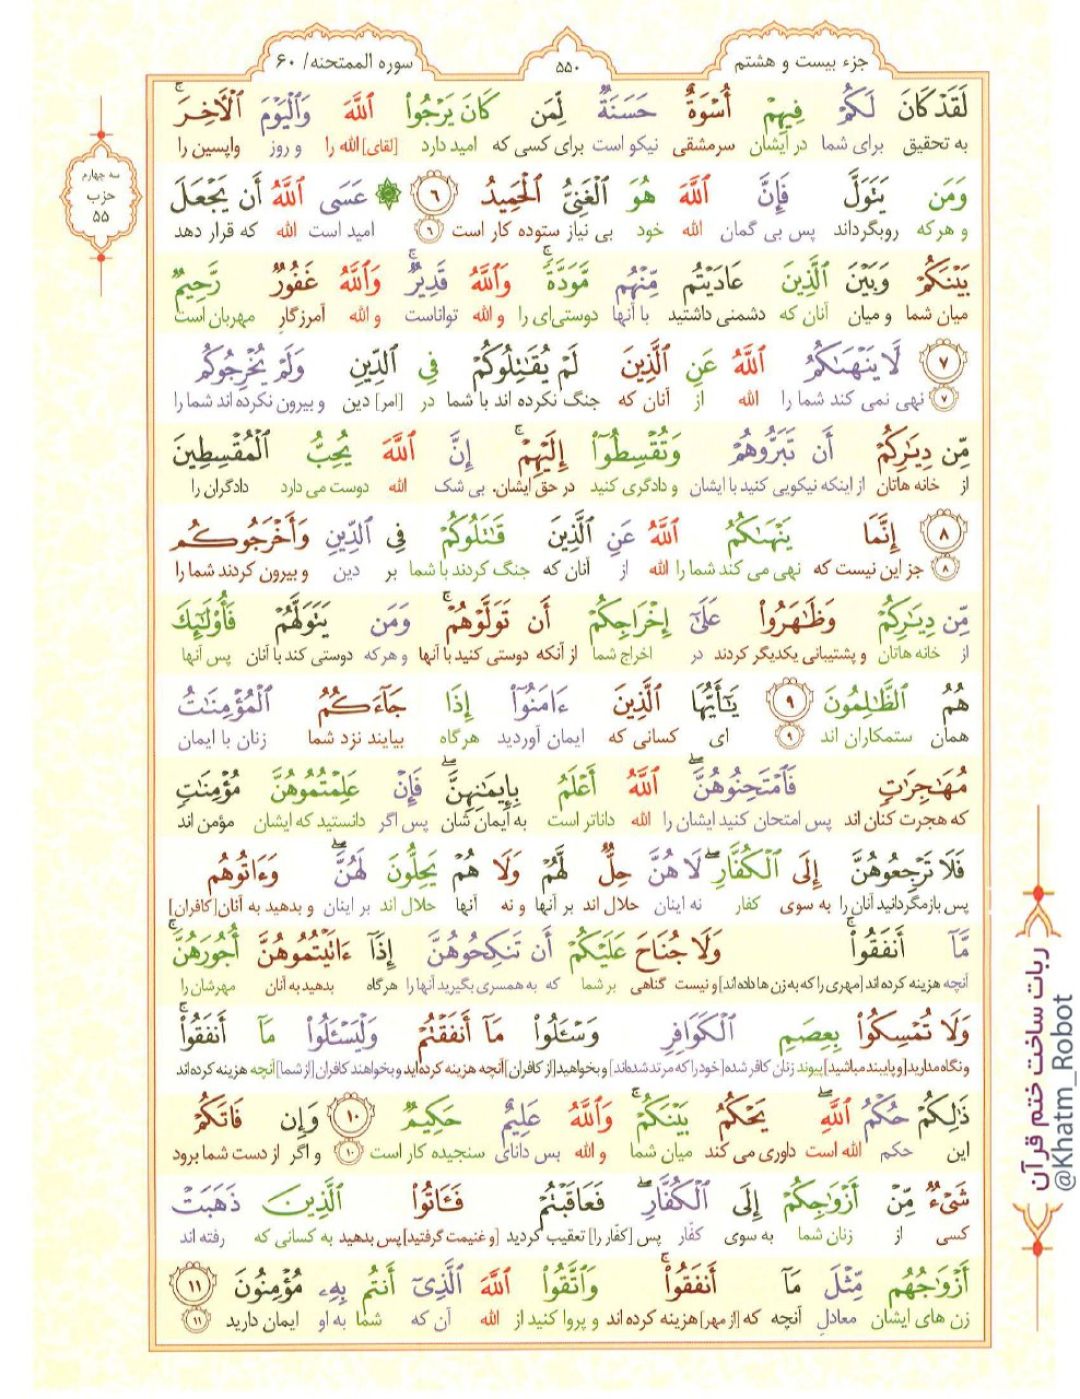 جزء بیست و هشتم
۵۵۰
سوره الممتحنه/ ۶۰
سه چهارم
حزب
۵۵
لَقَدۡ كَانَ لَكُمۡ فِيهِمۡ أُسۡوَةٌ حَسَنَةٌ لِّمَن كَانَ يَرۡجُواْ ٱللَّهَ وَٱلۡيَوۡمَ ٱلۡأٓخِرَۚ
به تحقیق برای شما در ایشان سرمشقی نیکو است برای کسی که امید دارد [لقای] الله را و روز واپسین را
وَمَن يَتَوَلَّ فَإِنَّ ٱللَّهَ هُوَ ٱلۡغَنِيُّ ٱلۡحَمِيدُ ۶ ۞ عَسَى ٱللَّهُ أَن يَجۡعَلَ
و هرکه رویگرداند پس بی گمان الله خود بی نیاز ستوده کار است ۶ امید است الله که قرار دهد
بَيۡنَكُمۡ وَبَيۡنَ ٱلَّذِينَ عَادَيۡتُم مِّنۡهُم مَّوَدَّةٗۚ وَٱللَّهُ قَدِيرٞۚ وَٱللَّهُ غَفُورٞ رَّحِيمٞ
میان شما و میان آنان که دشمنی داشتید با آنها دوستی‌ای را و الله تواناست و الله آمرزگار مهربان است
۷ لَّا يَنۡهَىٰكُمُ ٱللَّهُ عَنِ ٱلَّذِينَ لَمۡ يُقَٰتِلُوكُمۡ فِي ٱلدِّينِ وَلَمۡ يُخۡرِجُوكُم
۷ نهی نمی کند شما را الله از آنان که جنگ نکرده اند با شما در [امر] دین و بیرون نکرده اند شما را
مِّن دِيَٰرِكُمۡ أَن تَبَرُّوهُمۡ وَتُقۡسِطُوٓاْ إِلَيۡهِمۡۚ إِنَّ ٱللَّهَ يُحِبُّ ٱلۡمُقۡسِطِينَ
از خانه هاتان از اینکه نیکویی کنید با ایشان و دادگری کنید در حق ایشان. بی شک الله دوست می دارد دادگران را
۸ إِنَّمَا يَنۡهَىٰكُمُ ٱللَّهُ عَنِ ٱلَّذِينَ قَٰتَلُوكُمۡ فِي ٱلدِّينِ وَأَخۡرَجُوكُم
۸ جز این نیست که نهی می کند شما را الله از آنان که جنگ کردند با شما بر دین و بیرون کردند شما را
مِّن دِيَٰرِكُمۡ وَظَٰهَرُواْ عَلَىٰٓ إِخۡرَاجِكُمۡ أَن تَوَلَّوۡهُمۡۚ وَمَن يَتَوَلَّهُمۡ فَأُوْلَٰٓئِكَ
از خانه هاتان و پشتیبانی یکدیگر کردند در اخراج شما از آنکه دوستی کنید با آنها و هرکه دوستی کند با آنان پس آنها
هُمُ ٱلظَّٰلِمُونَ ۹ يَٰٓأَيُّهَا ٱلَّذِينَ ءَامَنُوٓاْ إِذَا جَآءَكُمُ ٱلۡمُؤۡمِنَٰتُ
همان ستمکاران اند ۹ ای کسانی که ایمان آوردید هرگاه بیایند نزد شما زنان با ایمان
مُهَٰجِرَٰتٖ فَٱمۡتَحِنُوهُنَّۖ ٱللَّهُ أَعۡلَمُ بِإِيمَٰنِهِنَّۖ فَإِنۡ عَلِمۡتُمُوهُنَّ مُؤۡمِنَٰتٖ
که هجرت کنان اند پس امتحان کنید ایشان را الله داناتر است به ایمان شان پس اگر دانستید که ایشان مؤمن اند
فَلَا تَرۡجِعُوهُنَّ إِلَى ٱلۡكُفَّارِۖ لَا هُنَّ حِلّٞ لَّهُمۡ وَلَا هُمۡ يَحِلُّونَ لَهُنَّۖ وَءَاتُوهُم
پس بازمگردانید آنان را به سوی کفار نه اینان حلال اند بر آنها و نه آنها حلال اند بر اینان و بدهید به آنان [کافران]
مَّآ أَنفَقُواْۚ وَلَا جُنَاحَ عَلَيۡكُمۡ أَن تَنكِحُوهُنَّ إِذَآ ءَاتَيۡتُمُوهُنَّ أُجُورَهُنَّۚ
آنچه هزینه کرده اند [مهری را که به زن ها داده اند] و نیست گناهی بر شما که به همسری بگیرید آنها را هرگاه بدهید به آنان مهرشان را
وَلَا تُمۡسِكُواْ بِعِصَمِ ٱلۡكَوَافِرِ وَسۡـَٔلُواْ مَآ أَنفَقۡتُمۡ وَلۡيَسۡـَٔلُواْ مَآ أَنفَقُواْۚ
و نگاه مدارید [و پایبند مباشید] پیوند زنان کافر شده [خود را که مرتد شده‌اند] و بخواهید [از کافران] آنچه هزینه کرده‌اید و بخواهند کافران [از شما] آنچه هزینه کرده اند
ذَٰلِكُمۡ حُكۡمُ ٱللَّهِۖ يَحۡكُمُ بَيۡنَكُمۡۚ وَٱللَّهُ عَلِيمٌ حَكِيمٞ ۱۰ وَإِن فَاتَكُمۡ
این حکم الله است داوری می کند میان شما و الله بس دانای سنجیده کار است ۱۰ و اگر از دست شما برود
شَيۡءٞ مِّنۡ أَزۡوَٰجِكُمۡ إِلَى ٱلۡكُفَّارِۖ فَعَاقَبۡتُمۡ فَـَٔاتُواْ ٱلَّذِينَ ذَهَبَتۡ
کسی از زنان شما به سوی کفّار پس [کفّار را] تعقیب کردید [و غنیمت گرفتید] پس بدهید به کسانی که رفته اند
أَزۡوَٰجُهُم مِّثۡلَ مَآ أَنفَقُواْۚ وَٱتَّقُواْ ٱللَّهَ ٱلَّذِيٓ أَنتُم بِهِۦ مُؤۡمِنُونَ ۱۱
زن های ایشان معادلِ آنچه که [از مهر] هزینه کرده اند و پروا کنید از الله آن که شما به او ایمان دارید ۱۱
ربات ساخت ختم قرآن
@Khatm_Robot